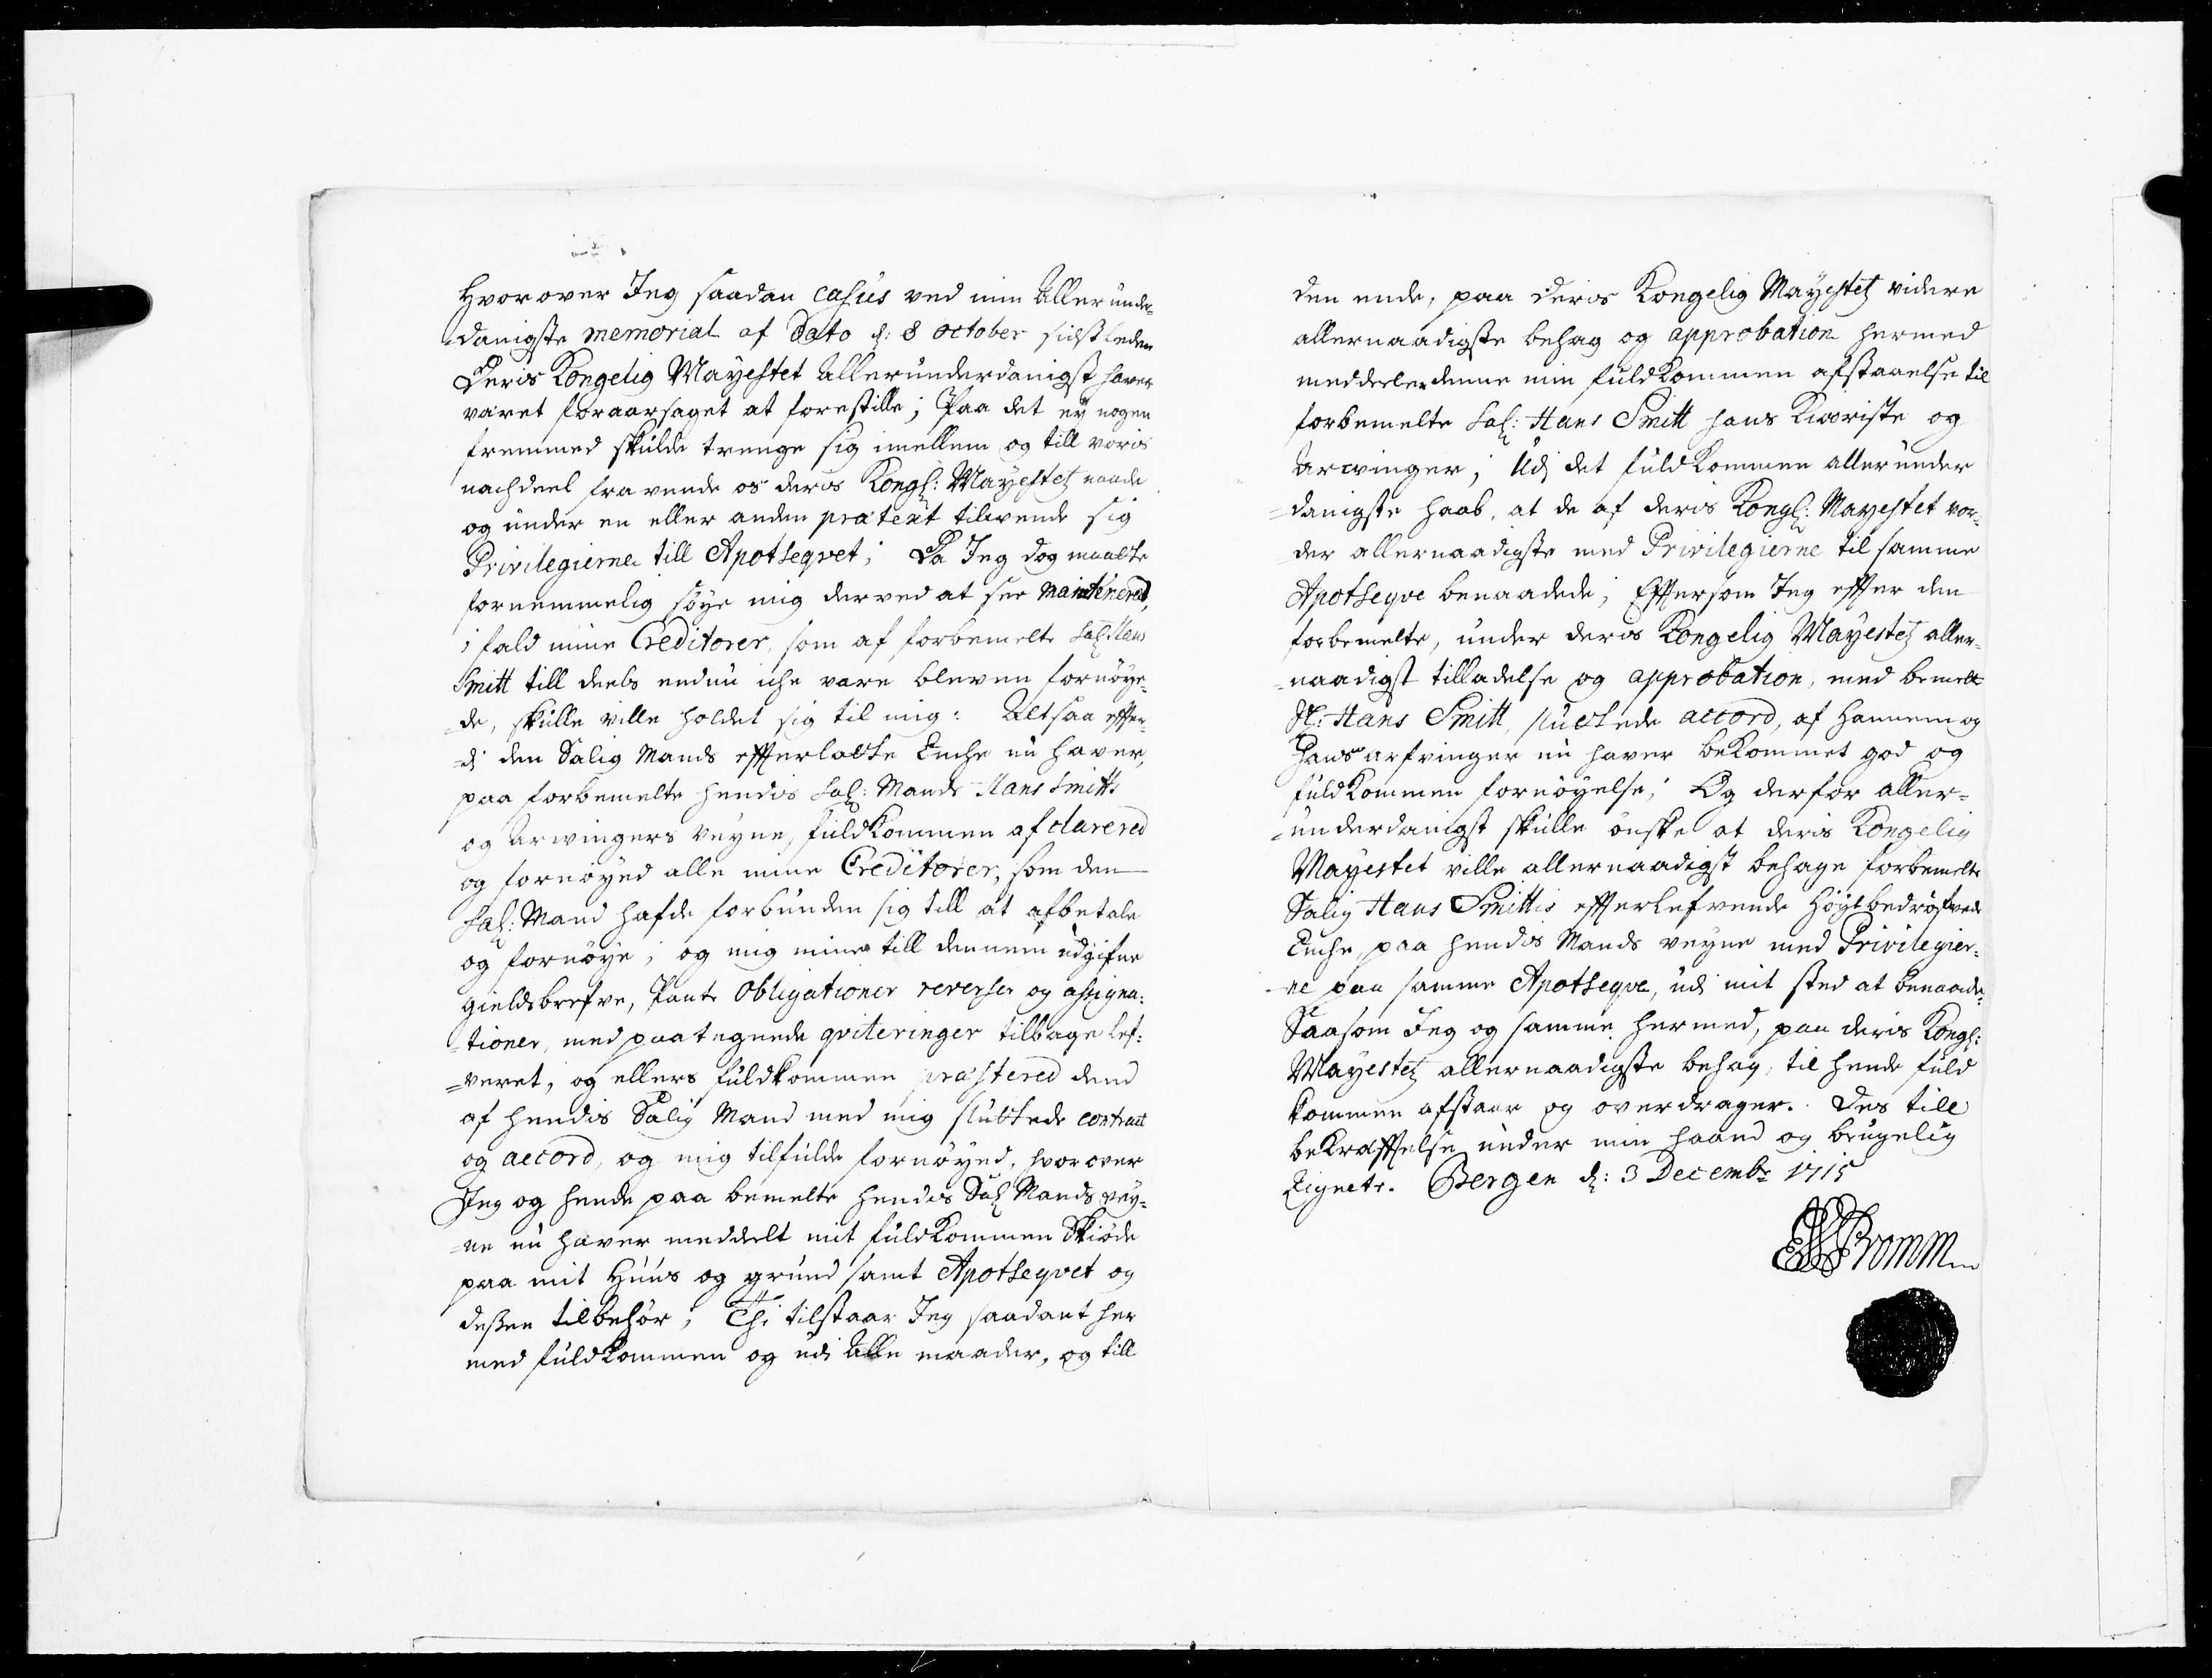 Hvorover Jeg saadan casus ved min Allerunde-
danigste memorial af Dato d: 8 october sidstleden
Deris Kongelig Mayestet Allerunderdanigst haver
været foraarsaget at forestille; Paa det ey nogen
fremmed skulde trenge sig imellem og till voris
nachdeel fravende os deris Kongl: Mayestetz naade
og under en eller anden prætext tilvende sig
Privilegierne till Apotheqvet; Da Jeg dog maatte
fornemmelig søge mig derved at see mainteneret,
i fald mine Creditorer, som af forbemelte Sal: Hans
Smitt till deels endnu iche vare bleven fornøye-
de, skulle ville holdet sig til mig: Altsaa effter-
di den Salig Mands effterlatte Enche nu haver,
paa forbemelte hendis Sal: Mands Hans Smitts
og Arvingers veyne, fuldkommen afclarered
og fornøyed alle mine Creditorer, som den
Sal: Mand hafde forbunden sig till at afbetale
og fornøye; og mig mine till dennem udgifne
gieldsbrefve, Pante Obligationer reverser og assigna-
tioner, med paategnede qviteringer tilbage lef-
veret, og ellers fuldkommen præstered dend
af hendis Salig Mand med mig sluttede contract
og accord, og mig tilfulde fornøyed, hvorover
Jeg og hende paa bemelte hendis Sal: Mands vey-
ne nu haver meddelt mit fuldkommen Skiøde
paa mit Huus og grund samt Apotheqvet og
dessen tilbehør; Thi tilstaar Jeg saadant her
med fuldkommen og udi Alle maader, og till
den ende, paa deris Kongelig Mayestetz videre
allernaadigste behag og approbation hermed
meddeeler denne min fuldkommen afstaaelse til
forbemelte Sal: Hans Smitt hans Efterladte og
Arvinger; Udi det fuldkommen allerunder
danigste haab, at de af deris Kongl: Mayestet vor-
der allernaadigste med Privilegierne til samme
Apotheqve benaadede; Efftersom Jeg effter den
forbemelte, under deris Kongelig Mayestetz aller-
naadigst tilladelse og approbation, med bemelte
Sl: Hans Smitt, sluttede accord, af Hannem og
Hans arfvinger nu haver bekommet god og
fuldkommen fornøyelse; Og derfor aller-
underdanigst skulle ønske at deris Kongelig
Mayestet ville allernaadigst behage forbemelte
Salig Hans Smittis effterlefvende Høystbedrøfvede
Enche, paa hendis Mands veyne med Privilegier-
ne paa samme Apotheqve, udi mit sted at benaade.
Saasom Jeg og samme hermed, paa deris Kongl:
Mayestetz allernaadigste behag, til hende fuld
kommen afstaar og overdrager. Des till
bekræfftelse under min haand og brugelig
Zignete. Bergen d: 3 Decembr 1715